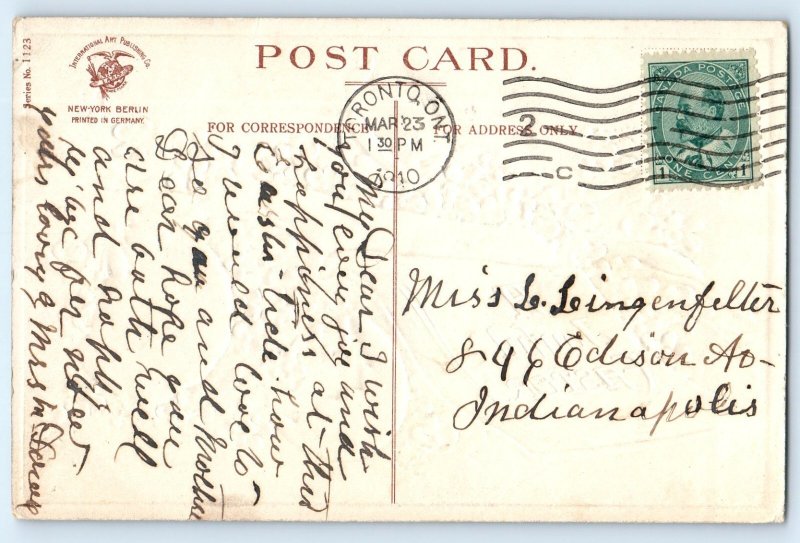 Series No. 1123
INTERNATIONAL ART PUBLISHING Co.
NEW-YORK BERLIN
PRINTED IN GERMANY.
POST CARD.
FOR CORRESPONDENCE
FOR ADDRESS ONLY
TORONTO, ONT
MAR 23
1 30 PM
1910
2
C
CANADA POSTAGE
1 ONE CENT 1
My Dear I wish
you every joy and
happiness at this
Easter-tide. how
I would love to
see you and Mother
Dear hope you
are both well
and happy
bye bye for
yours loving Mrs
Miss L. Lingenfelter
846 Edison Av-
Indianapolis